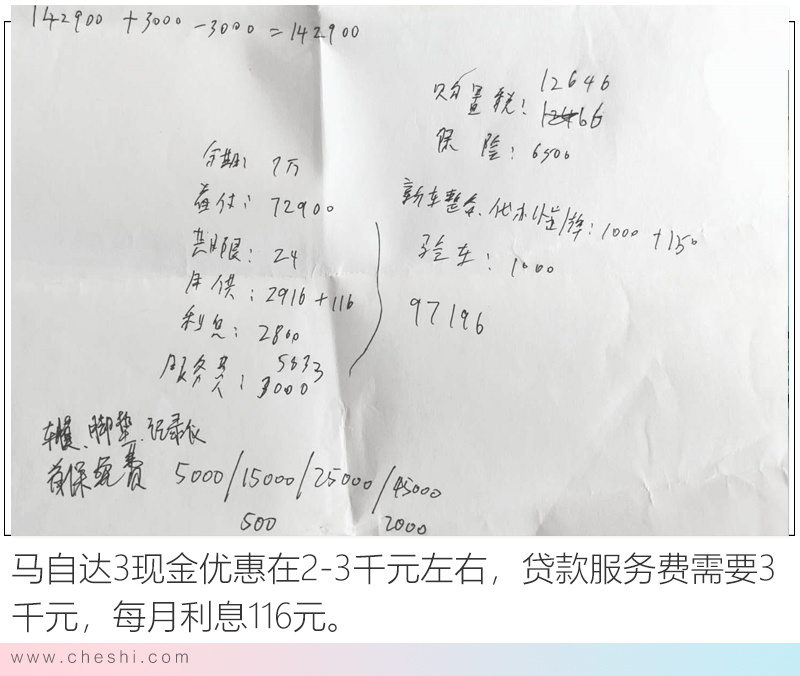 142900 + 3000 - 3000 = 142900
购置税: 12646
12466
保险: 6500
分期: 7万
首付: 72900
期限: 24
月供: 2916 + 116
利息: 2800
服务费: 3000
5833
新车整备、代办上牌: 1000 + 150
验车: 1000
97196
车膜、脚垫、记录仪
首保免费 5000/15000/25000/45000
500 2000
马自达3现金优惠在2-3千元左右，贷款服务费需要3
千元，每月利息116元。
www.cheshi.com